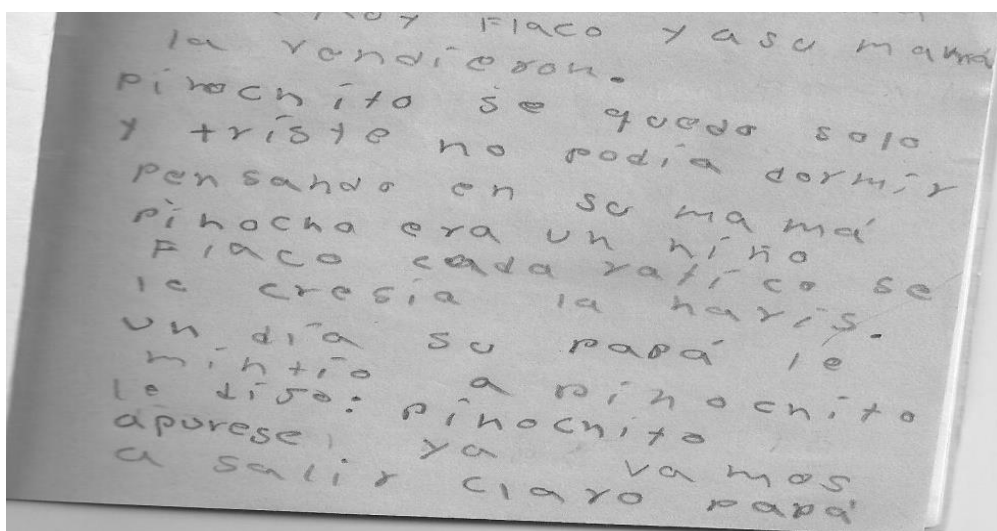 Flaco y a su mamá
la vendieron.
pinochito se quedo solo
y triste no podia dormir
pensando en su mamá
pinocho era un niño
Flaco cada ratico se
le cresia la naris.
un día su papá le
mintio a pinochito
le diso: pinochito
apurese, ya vamos
a salir claro papá